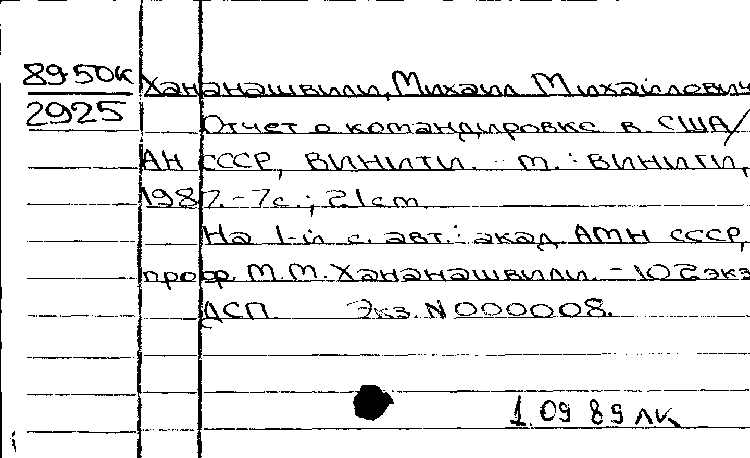 89-50к
2925
Хананашвили, Михаил Михайлович
Отчет о командировке в США/
АН СССР, ВИНИТИ. - м.: ВИНИТИ,
1987. - 7с.; 21cm
На 1-й с. авт.: акад. АМН СССР,
проф. М.М. Хананашвили. - 102экз
ДСП. Экз. N 000008.
1.09 89 лк